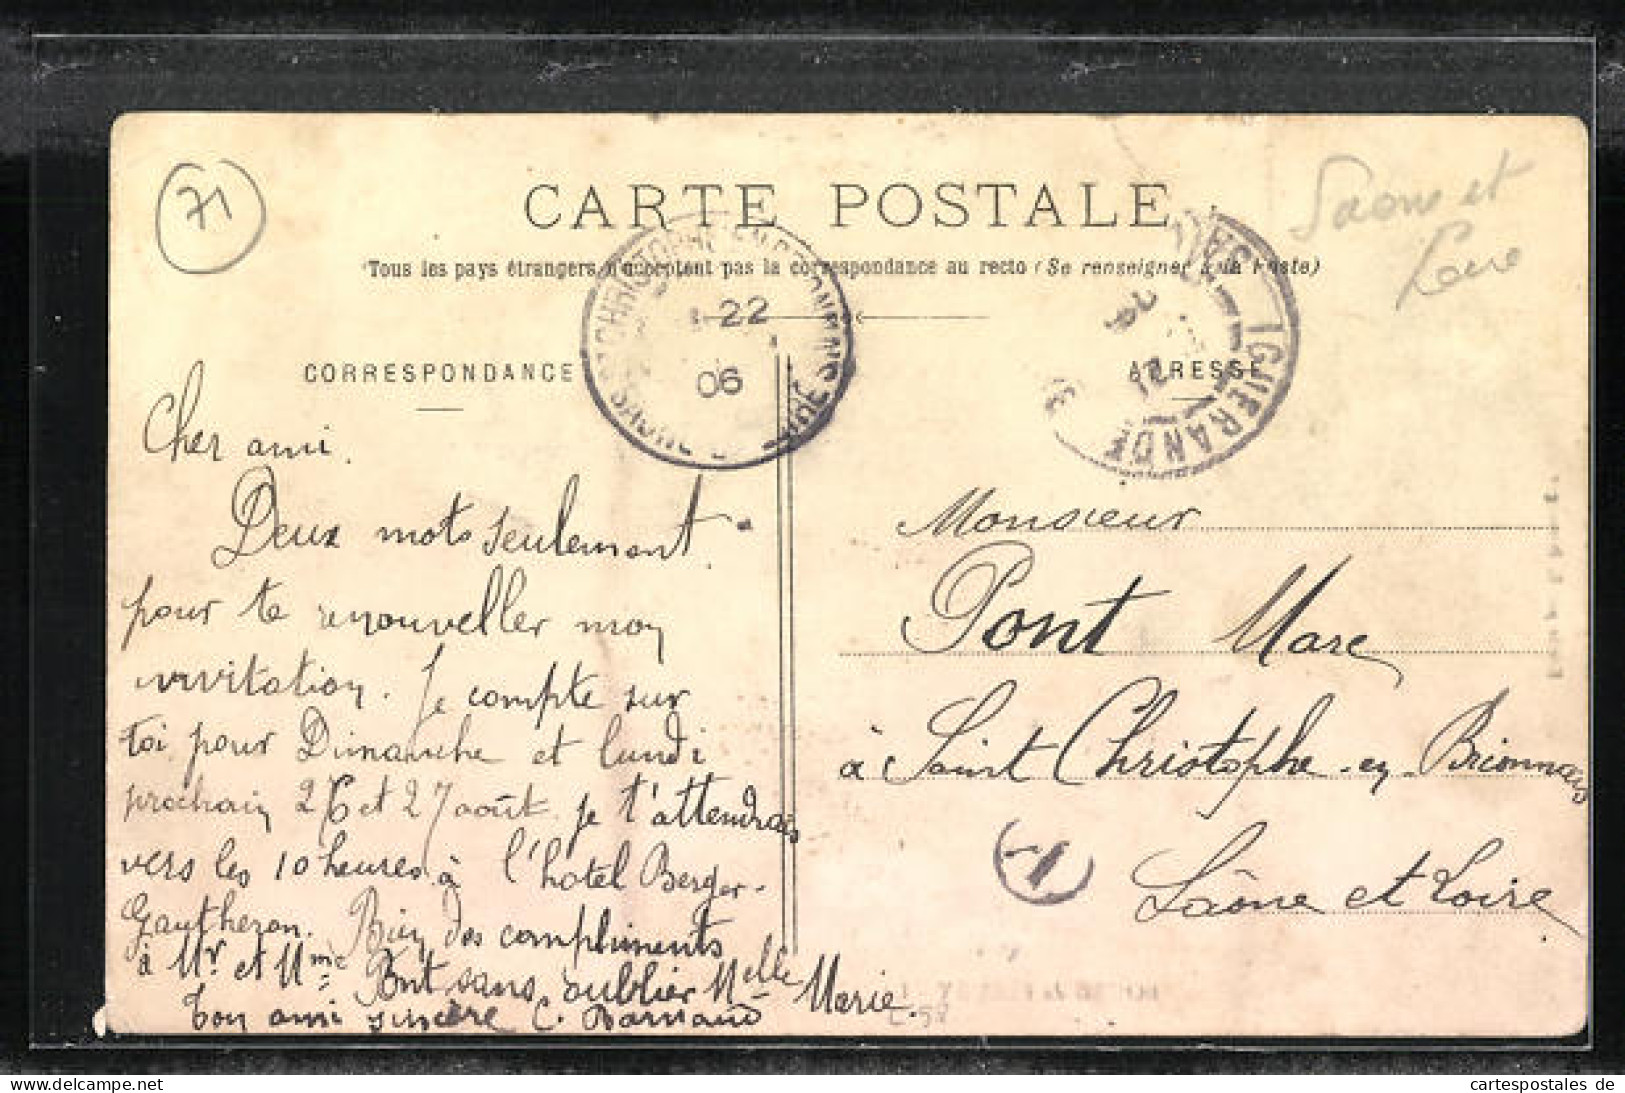 71
CARTE POSTALE
Saone et
Loire
Tous les pays étrangers n'acceptent pas la correspondance au recto (Se renseigner à la Poste)
ST CHRISTOPHE EN BRIONNAIS
SAONE ET LOIRE
22
06
IGUERANDE
CORRESPONDANCE
ADRESSE
Cher ami.
Deux mots seulement
pour te renouveller mon
invitation. Je compte sur
toi pour Dimanche et lundi
prochain 26 et 27 août. je t'attendrais
vers les 10 heures à l'hôtel Berger-
Gautheron. Bien des compliments
à Mr et Mme Pont sans oublier Melle Marie.
Ton ami sincère C. Barnaud
Monsieur
Pont Marc
à Saint Christophe-en-Brionnais
Saône et Loire
1
cartespostales de